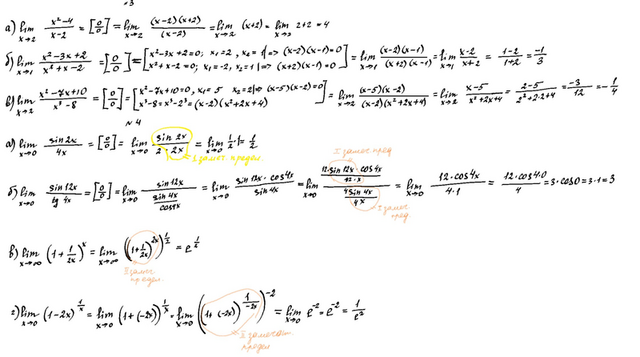 ~3
а) lim x→2 (x²-4)/(x-2) = [0/0] = lim x→2 ((x-2)(x+2))/(x-2) = lim x→2 (x+2) = lim x→2 2+2 = 4
б) lim x→1 (x²-3x+2)/(x²+x-2) = [0/0] = [x²-3x+2=0; x₁=2, x₂=1 |⇒ (x-2)(x-1)=0; x²+x-2=0; x₁=-2, x₂=1 |⇒ (x+2)(x-1)=0] = lim x→1 ((x-2)(x-1))/((x+2)(x-1)) = lim x→1 (x-2)/(x+2) = (1-2)/(1+2) = -1/3
в) lim x→2 (x²-7x+10)/(x³-8) = [0/0] = [x²-7x+10=0, x₁=5 x₂=2 |⇒ (x-5)(x-2)=0; x³-8=x³-2³=(x-2)(x²+2x+4)] = lim x→2 ((x-5)(x-2))/((x-2)(x²+2x+4)) = lim x→2 (x-5)/(x²+2x+4) = (2-5)/(2²+2·2+4) = -3/12 = -1/4
~4
а) lim x→0 (sin 2x)/(4x) = [0/0] = lim x→0 (sin 2x)/(2·2x) = lim x→0 1/2·1 = 1/2.
I замеч. предел.
I замеч. пред
б) lim x→0 (sin 12x)/(tg 4x) = [0/0] = lim x→0 (sin 12x)/((sin 4x)/(cos 4x)) = lim x→0 (sin 12x · cos 4x)/(sin 4x) = lim x→0 ((12·sin 12x · cos 4x)/(12·x))/((4 sin 4x)/(4x)) = lim x→0 (12·cos 4x)/(4·1) = (12·cos 4·0)/4 = 3·cos 0 = 3·1 = 3
I замеч. пред.
в) lim x→∞ (1+1/(2x))^x = lim x→∞ ((1+1/(2x))^(2x))^(1/2) = e^(1/2)
II замеч предел.
г) lim x→0 (1-2x)^(1/x) = lim x→0 (1+(-2x))^(1/x) = lim x→0 ((1+(-2x))^(1/(-2x)))^(-2) = lim x→0 e^(-2) = e^(-2) = 1/e²
предел